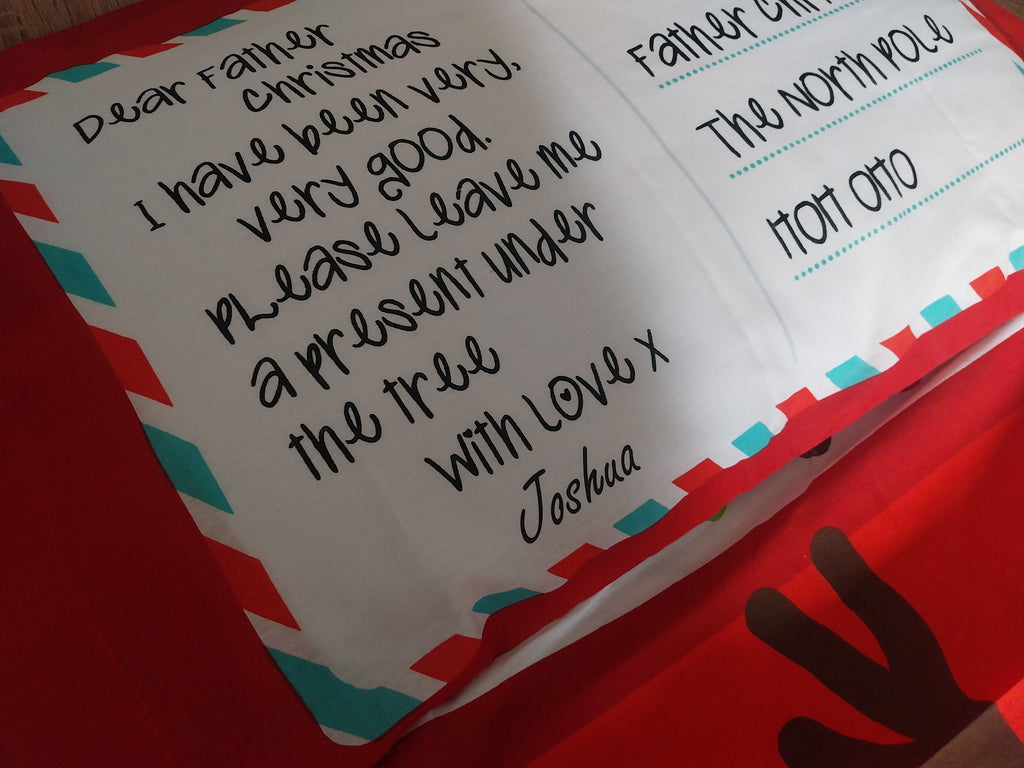 Dear Father
Christmas
I have been very,
very good.
Please Leave me
a present under
the tree
With Love x
Joshua
Father
The North Pole
HOH OHO